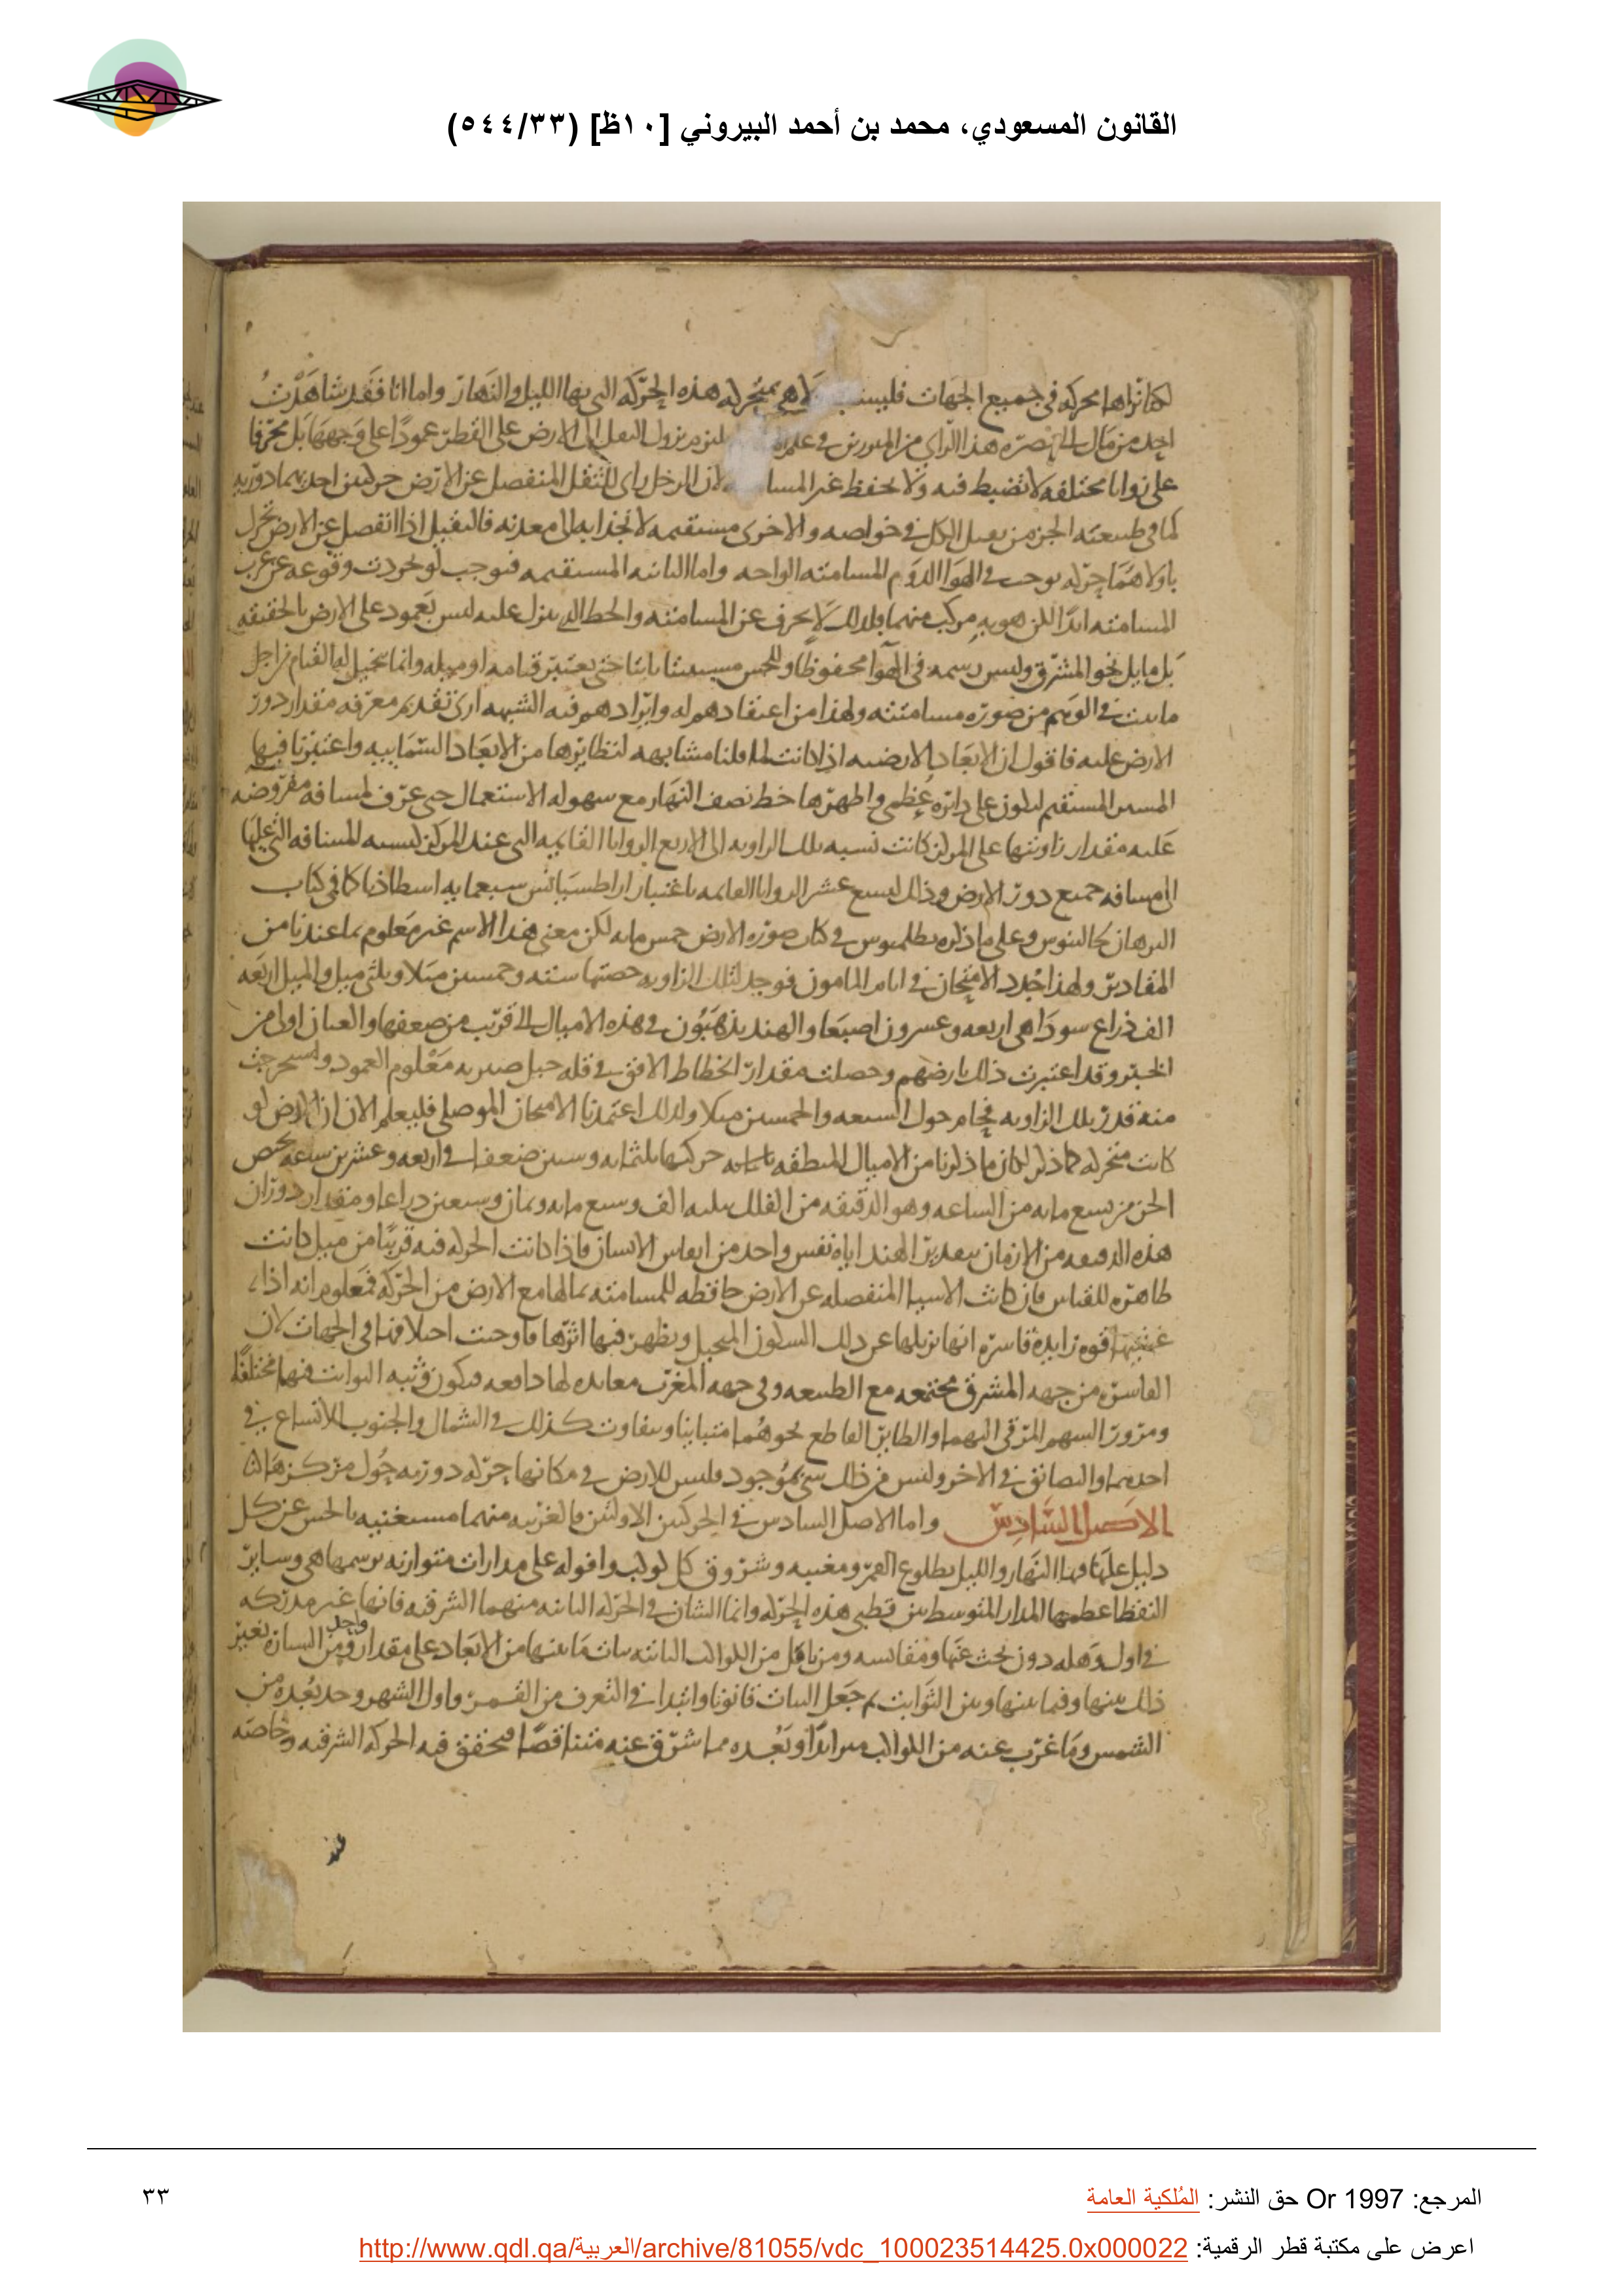 القانون المسعودي، محمد بن أحمد البيروني [١٠ظ] (٥٤٤/٣٣)
لكنا نراها محركه في جميع الجهات فليست ولا هي بمتحركه هذه الحركه التي بها الليل والنهار واما انا فقد شاهدت
احد من مال الى نصره هذا الراي من المبرزين في علم نزول الثقل الى الارض على القطر عمودا على وجهها بل محرفا
على زوايا مختلفه لا تضبط فيه ولا تحفظ غير لان الرجل راى للثقل المنفصل عن الارض حركتين احديهما دوريه
لما في طبيعته الجزء من الكل في خواصه والاخرى مستقيمه لانجذابه الى معدنه فالثقيل اذا انفصل عن الارض تحرك
باولاهما حركه توجب في الهوا الدوام المسامته الواحده واما الثانيه المستقيمه فتوجب لو تجردت وقوعه عن غرب
المسامته ابدا لكن هويه مركب منهما فلذلك لا يحرف عن المسامته والخط الذي ينزل عليه ليس بعمود على الارض بالحقيقه
بل مايل نحو المشرق وليس رسمه في الهوا محفوظا وللحس مستبينا ثابتا حتى يعتبر قيامه او ميله وانما تخيل له القيام من اجل
ما ثبت في الوهم من صوره مسامتته ولهذا من اعتقادهم له وايرادهم فيه الشبهه ارى تقديم معرفه مقدار دور
الارض عليه فاقول ان الابعاد الارضيه اذا كانت لما قلنا مشابهه لنظايرها من الابعاد السمائيه واعتبرنا فيها
المسير المستقيم ليكون على دايره عظمى واظهرها خط نصف النهار مع سهوله الاستعمال حتى عرف لمسافه مفروضه
عليه مقدار زاويتها على المركز كانت نسبه تلك الزاويه الى الاربع الزوايا القايمه التي عند المركز كنسبه المسافه التي عليها
الى مسافه جميع دور الارض وذلك لتسع عشر الزوايا القايمه باعتبار اراطسثانس سبعمايه اسطاذيا كما في كتاب
البرهان لجالينوس وعلى ما ذكره بطلميوس في كتاب صوره الارض خمس مايه لكن معنى هذا الاسم غير معلوم بما عندنا من
المقادير ولهذا جدد الامتحان في ايام المامون فوجد لتلك الزاويه حصتها سته وخمسين ميلا وثلثي ميل والميل اربعه
الف ذراع سودا هي اربعه وعشرون اصبعا والهند يذهبون في هذه الاميال الى قريب من ضعفها والعيان اولى من
الخبر وقد اعتبرت ذلك بارضهم وحصلت مقدار انحطاط الافق في قله جبل صيرته معلوم العمود واستخرجت
منه قدر تلك الزاويه فحام حول السبعه والخمسين ميلا ولذلك اعتمدنا الامتحان الموصلي فليعلم الان ان الارض لو
كانت متحركه كما ذكر لكان ما ذكرنا من الاميال لمنطقه حركتها ثلثمايه وستين ضعفا في اربعه وعشرين ساعه يخص
الجزء من تسع مايه من الساعه وهو الدقيقه من الفلك ثلثه الف وسبع مايه وثمان وسبعين ذراعا ومقدار دوران
هذه الدقيقه من الازمان بتقدير الهند اياه نفس واحد من انفاس الانسان فاذا كانت الحركه فيه قريبا من ميل كانت
ظاهره للقياس فان كانت الاشيا المنفصله عن الارض حافظه للمسامته بمالها مع الارض من الحركه فمعلوم انه اذا
قوه زايده قاسره انها تزيلها عن ذلك السكون المتخيل ويظهر فيها اثرها فاوجبت اختلافها في الجهات لان
القاسره من جهه المشرق مجتمعه مع الطبيعه وفي جهه المغرب معانده لها دافعه فيكون وثبه الواثب فيهما مختلفا
ومرور السهم المرقى اليهما والطاير القاطع نحوهما متباينا ويتفاوت كذلك في الشمال والجنوب للاتساع في
احديهما والتضايق في الاخر وليس من ذلك شي بموجود فليس للارض في مكانها حركه دوريه حول مركزها
الاصل السادس واما الاصل السادس في الحركتين الاولتين فالغربيه منهما مستغنيه بالحس عن كل
دليل عليها النهار والليل بطلوع القمر ومغيبه وشروق كل كوكب وافوله على مدارات متوازيه ترسمها هي وساير
النقط اعظمها المدار المتوسط بين قطبي هذه الحركه وانما الشان في الحركه الثانيه منهما الشرقيه فانها غير مدركه
في اول وهله دون بحث عنها ومقايسه ومن تامل من الكواكب الثابته ثبات ما بينها من الابعاد على مقدار واحد ومن السياره تغير
ذلك بينها وفيما بينها وبين الثوابت ثم جعل الثبات قانونا وابتدا في التعرف من القمر واول الشهر وجد بعده من
الشمس وما غرب عنه من الكواكب متزايدا وبعده مما شرق عنه متناقصا فتحقق فيه الحركه الشرقيه وخاصه
عند
المرجع: Or 1997 حق النشر: المُلكية العامة
٣٣
اعرض على مكتبة قطر الرقمية: http://www.qdl.qa/العربية/archive/81055/vdc_100023514425.0x000022